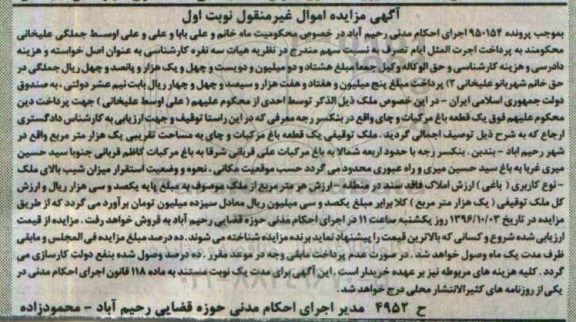 آگهی مزایده اموال غیرمنقول نوبت اول
بموجب پرونده ۹۵۰۱۵۴ اجرای احکام مدنی رحیم آباد در خصوص محکومیت ماه خانم و علی بابا و علی و علی اوسط جملگی علیخانی
محکومند به پرداخت اجرت المثل ایام تصرف به نسبت سهم مندرج در نظریه هیات سه نفره کارشناسی به عنوان اصل خواسته و هزینه
دادرسی و هزینه کارشناسی و حق الوکاله وکیل جمعا مبلغ هشتاد و دو میلیون و دویست و چهل و یک هزار و پانصد و چهل ریال جملگی در
حق خانم شهربانو علیخانی ۲) پرداخت مبلغ پنج میلیون و هفتاد و هفت هزار و سیصد و چهل و چهار ریال بابت نیم عشر دولتی ، به صندوق
دولت جمهوری اسلامی ایران - در این خصوص ملک ذیل الذکر توسط احدی از محکوم علیهم ( علی اوسط علیخانی ) جهت پرداخت دین
محکوم علیهم فوق یک قطعه باغ مرکبات و چای واقع در بنکسر رجه معرفی که در این راستا توقیف و جهت ارزیابی به کارشناس دادگستری
ارجاع که به شرح ذیل توصیف اجمالی گردید . ملک توقیفی یک قطعه باغ مرکبات و چای به مساحت تقریبی یک هزار متر مربع واقع در
شهر رحیم اباد - بندبن . بنکسر رجه با حدود اربعه شمالا به باغ مرکبات علی قربانی شرقا به باغ مرکبات کاظم قربانی جنوبا سید حسین
میری غربا به باغ سید حسین میری و راه عبوری محدود می گردد حسب موقعیت مکانی ، نحوه و وضعیت استقرار میزان شیب بالای ملک
- نوع کاربری ( باغی ) ارزش املاک فاقد سند در منطقه - ارزش هر متر مربع از ملک موصوف به مبلغ پایه یکصد و سی هزار ریال و ارزش
کل ملک توقیفی ( یک هزار متر مربع ) کلا برابر مبلغ یکصد و سی میلیون ریال معادل سیزده میلیون تومان برآورد می گردد که از طریق
مزایده در تاریخ ۱۳۹۶/۱۰/۰۳ روز یکشنبه ساعت ۱۱ در اجرای احکام مدنی حوزه قضایی رحیم آباد به فروش خواهد رفت . مزایده از قیمت
ارزیابی شده شروع و کسانی که بالاترین قیمت را پیشنهاد نماید برنده مزایده شناخته می شوند . ده درصد مبلغ مزایده فی المجلس و مابقی
ظرف مدت یک ماه وصول خواهد شد . در صورت عدم پرداخت مابقی وجه در موعد مقرر . ده درصد وصول شده بنفع دولت کارسازی می
گردد . کلیه هزینه های مربوطه نیز بر عهده خریدار است . این آگهی برای مدت یک نوبت مستند به ماده ۱۱۸ قانون اجرای احکام مدنی در
یکی از روزنامه های کثیرالانتشار محلی درج خواهد شد.
ح ۴۹۵۲ مدیر اجرای احکام مدنی حوزه قضایی رحیم آباد - محمودزاده